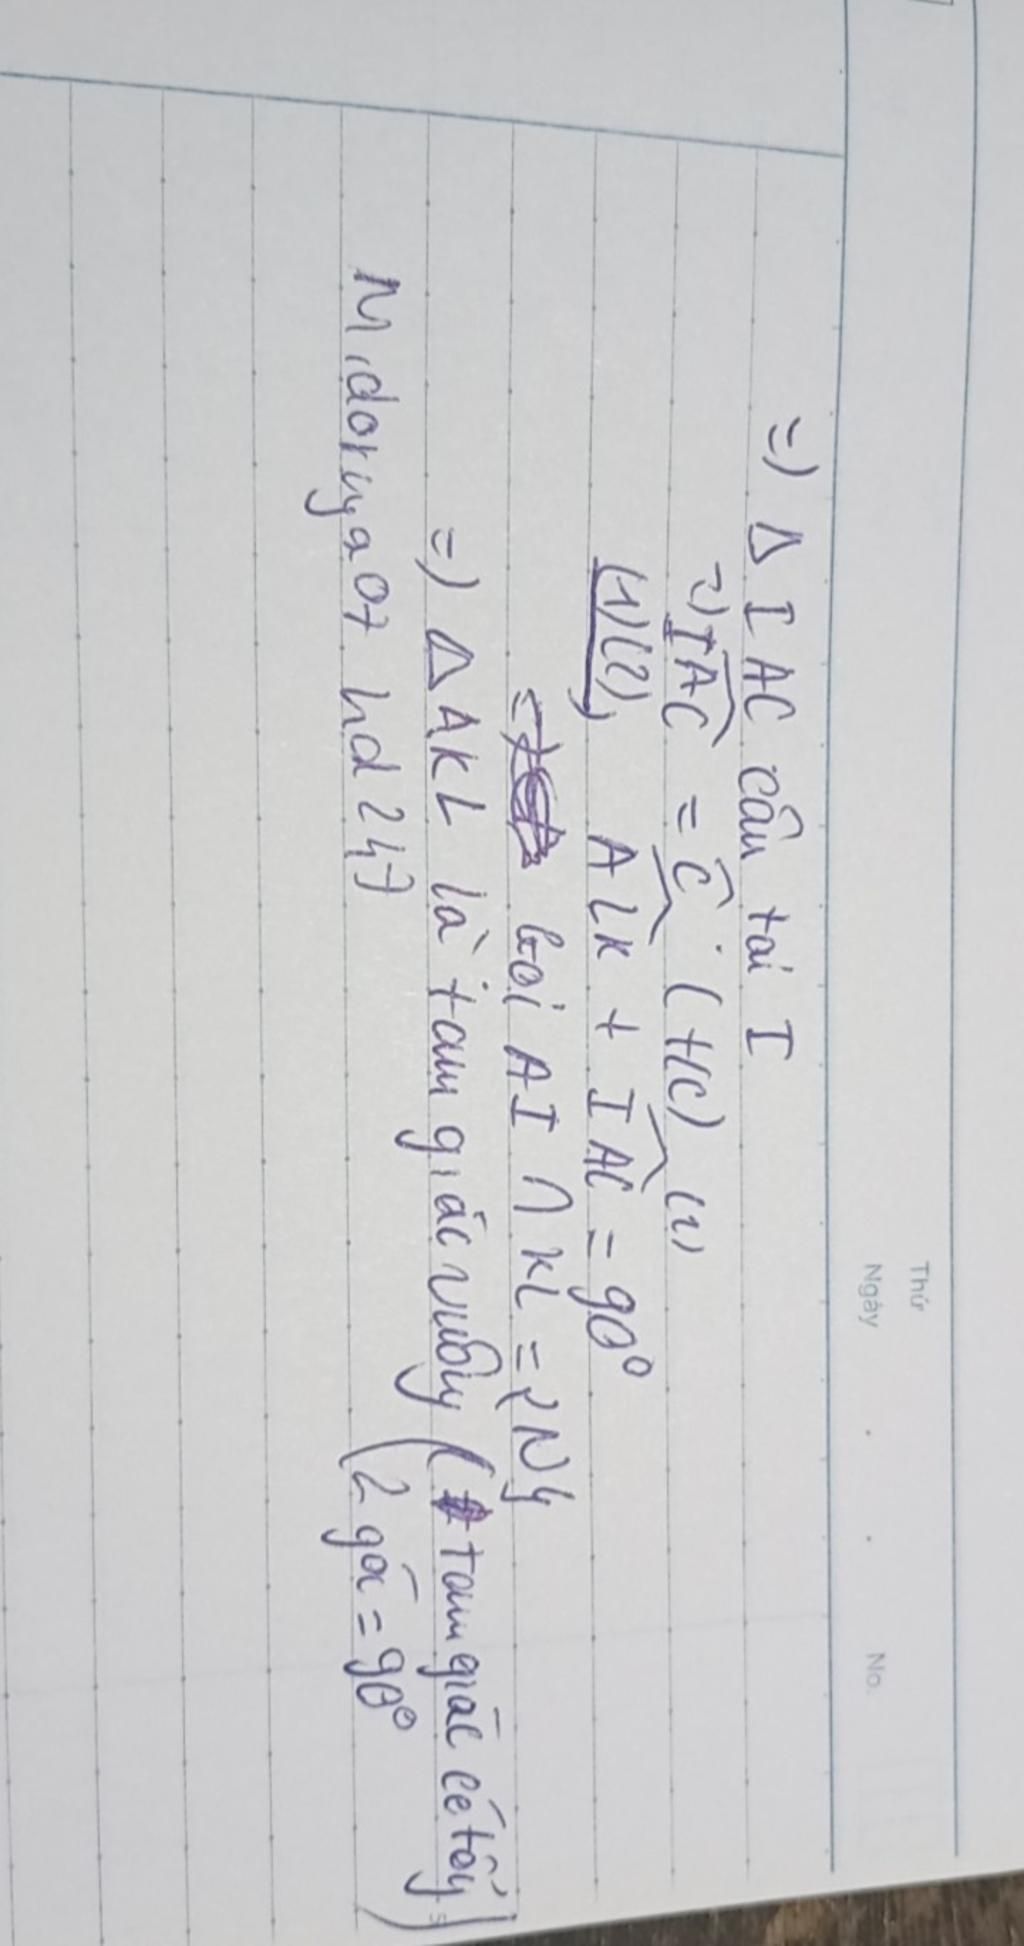 Thứ
Ngày . . No.
=) Δ IAC cân tại I
=) IAC = C (t/c) (2)
(1)(2), ALK + IAC = 90°
= gọi AI ∩ KL = {N}
=) Δ AKL là tam giác vuông (tam giác có tổng
2 góc = 90°)
Midoriya07 hd247